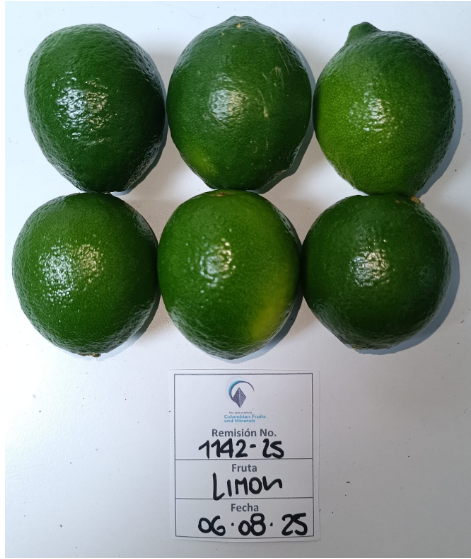 Colombian Fruits
and Minerals
Remisión No.
1142-25
Fruta
LIMON
Fecha
06.08.25